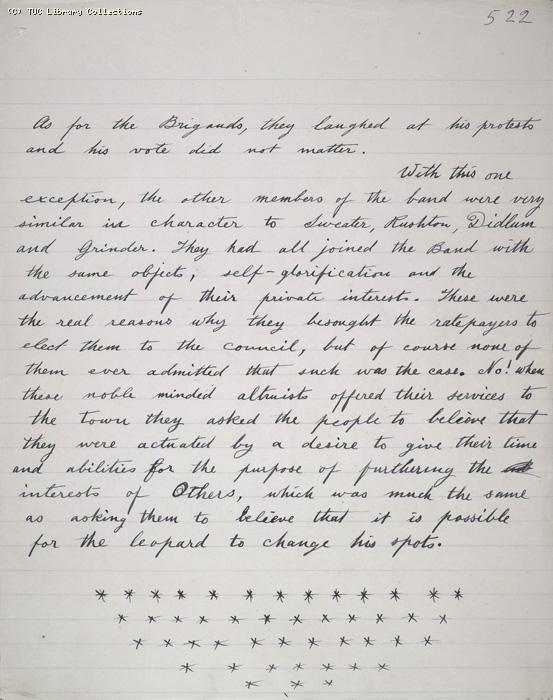 (C) TUC Library Collections
522
As for the Brigands, they laughed at his protests
and his vote did not matter.
With this one
exception, the other members of the band were very
similar in character to Sweater, Rushton, Didlum
and Grinder. They had all joined the Band with
the same objects, self-glorification and the
advancement of their private interests. These were
the real reasons why they besought the ratepayers to
elect them to the council, but of course none of
them ever admitted that such was the case. No! when
these noble minded altruists offered their services to
the town they asked the people to believe that
they were actuated by a desire to give their time
and abilities for the purpose of furthering the
interests of Others, which was much the same
as asking them to believe that it is possible
for the leopard to change his spots.
* * * * * * * * * * * *
* * * * * * * * * * *
* * * * * * * * * * *
* * * * * * *
* * *